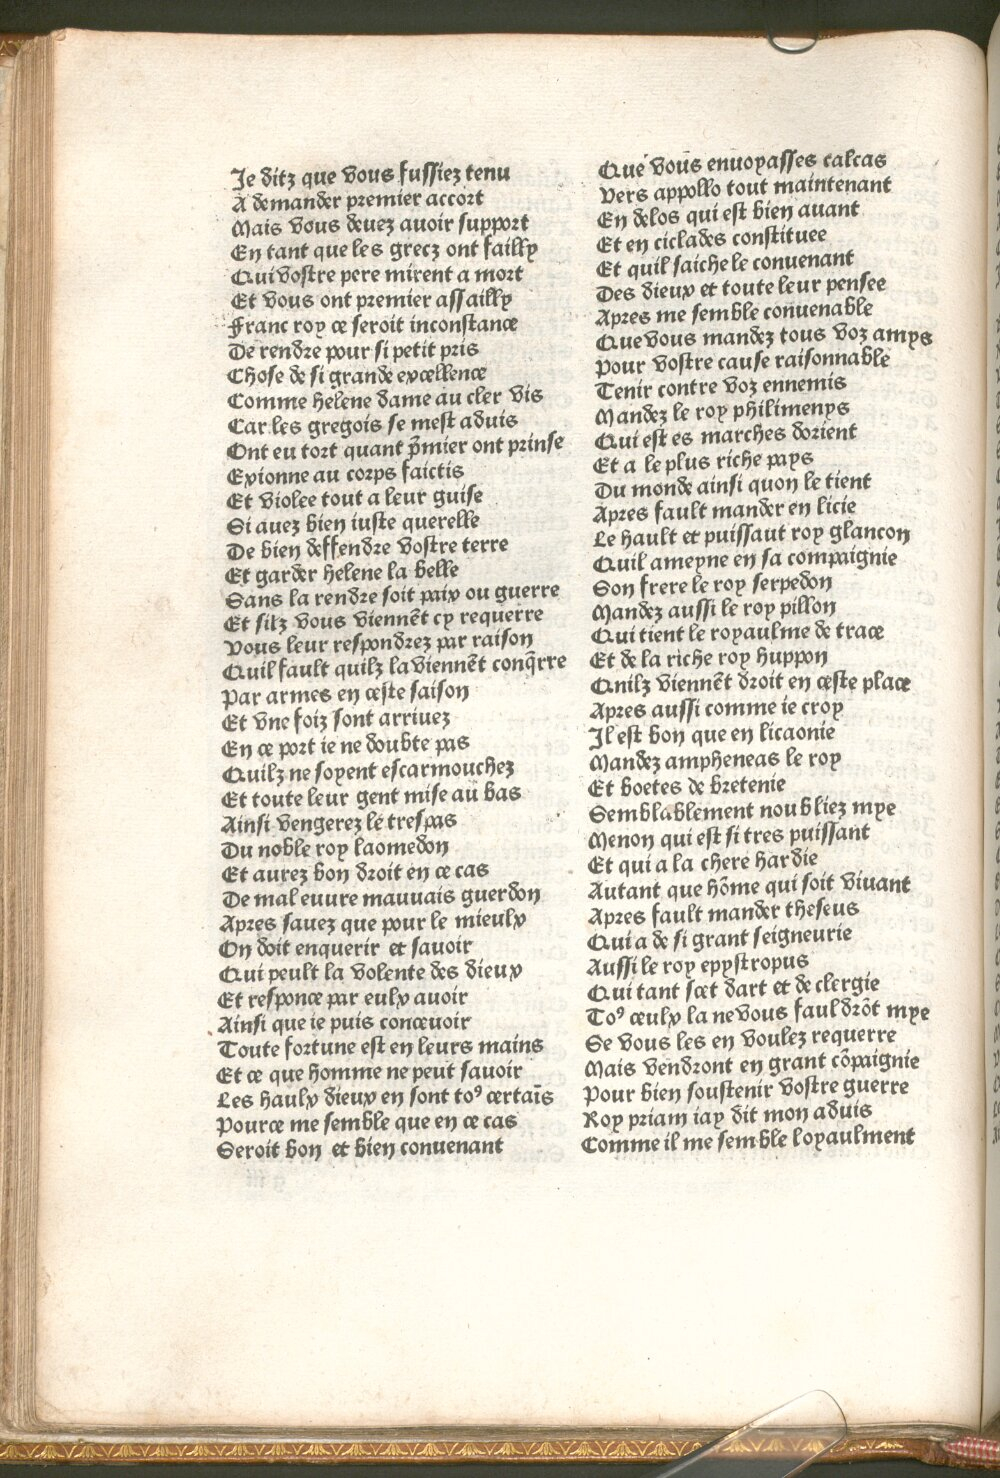 Je ditz que vous fussiez tenu
A demander premier accort
Mais vous deuez auoir support
En tant que les grecz ont failly
Qui vostre pere mirent a mort
Et vous ont premier assailly
Franc roy ce seroit inconstance
De rendre pour si petit pris
Chose de si grande excellence
Comme helene dame au cler vis
Car les gregois se mest aduis
Ont eu tort quant p̄mier ont prinse
Exionne au corps faictis
Et violee tout a leur guise
Si auez bien iuste querelle
De bien deffendre vostre terre
Et garder helene la belle
Sans la rendre soit paix ou guerre
Et silz vous viennēt cy requerre
Vous leur respondrez par raison
Quil fault quilz la viennēt conq̄rre
Par armes en ceste saison
Et vne foiz sont arriuez
En ce port ie ne doubte pas
Quilz ne soyent escarmouchez
Et toute leur gent mise au bas
Ainsi vengerez le trespas
Du noble roy laomedon
Et aurez bon droit en ce cas
De mal euure mauuais guerdon
Apres sauez que pour le mieulx
On doit enquerir et sauoir
Qui peult la volente des dieux
Et responce par eulx auoir
Ainsi que ie puis conceuoir
Toute fortune est en leurs mains
Et ce que homme ne peut sauoir
Les haulx dieux en sont to⁹ certaīs
Pource me semble que en ce cas
Seroit bon et bien conuenant
Que vous enuoyasses calcas
Vers appollo tout maintenant
En delos qui est bien auant
Et en ciclades constituee
Et quil saiche le conuenant
Des dieux et toute leur pensee
Apres me semble conuenable
Que vous mandez tous voz amys
Pour vostre cause raisonnable
Tenir contre voz ennemis
Mandez le roy philimenys
Qui est es marches dorient
Et a le plus riche pays
Du monde ainsi quon le tient
Apres fault mander en licie
Le hault et puissaut roy glancon
Quil ameyne en sa compaignie
Son frere le roy serpedon
Mandez aussi le roy pillon
Qui tient le royaulme de trace
Et de la riche roy huppon
Qnilz viennēt droit en ceste place
Apres aussi comme ie croy
Il est bon que en licaonie
Mandez ampheneas le roy
Et boetes de bretenie
Semblablement noubliez mye
Menon qui est si tres puissant
Et qui a la chere hardie
Autant que hōme qui soit viuant
Apres fault mander theseus
Qui a de si grant seigneurie
Aussi le roy epystropus
Qui tant scet dart et de clergie
To⁹ ceulx la ne vous fauldrōt mye
Se vous les en voulez requerre
Mais vendront en grant cōpaignie
Pour bien soustenir vostre guerre
Roy priam iay dit mon aduis
Comme il me semble loyaulment